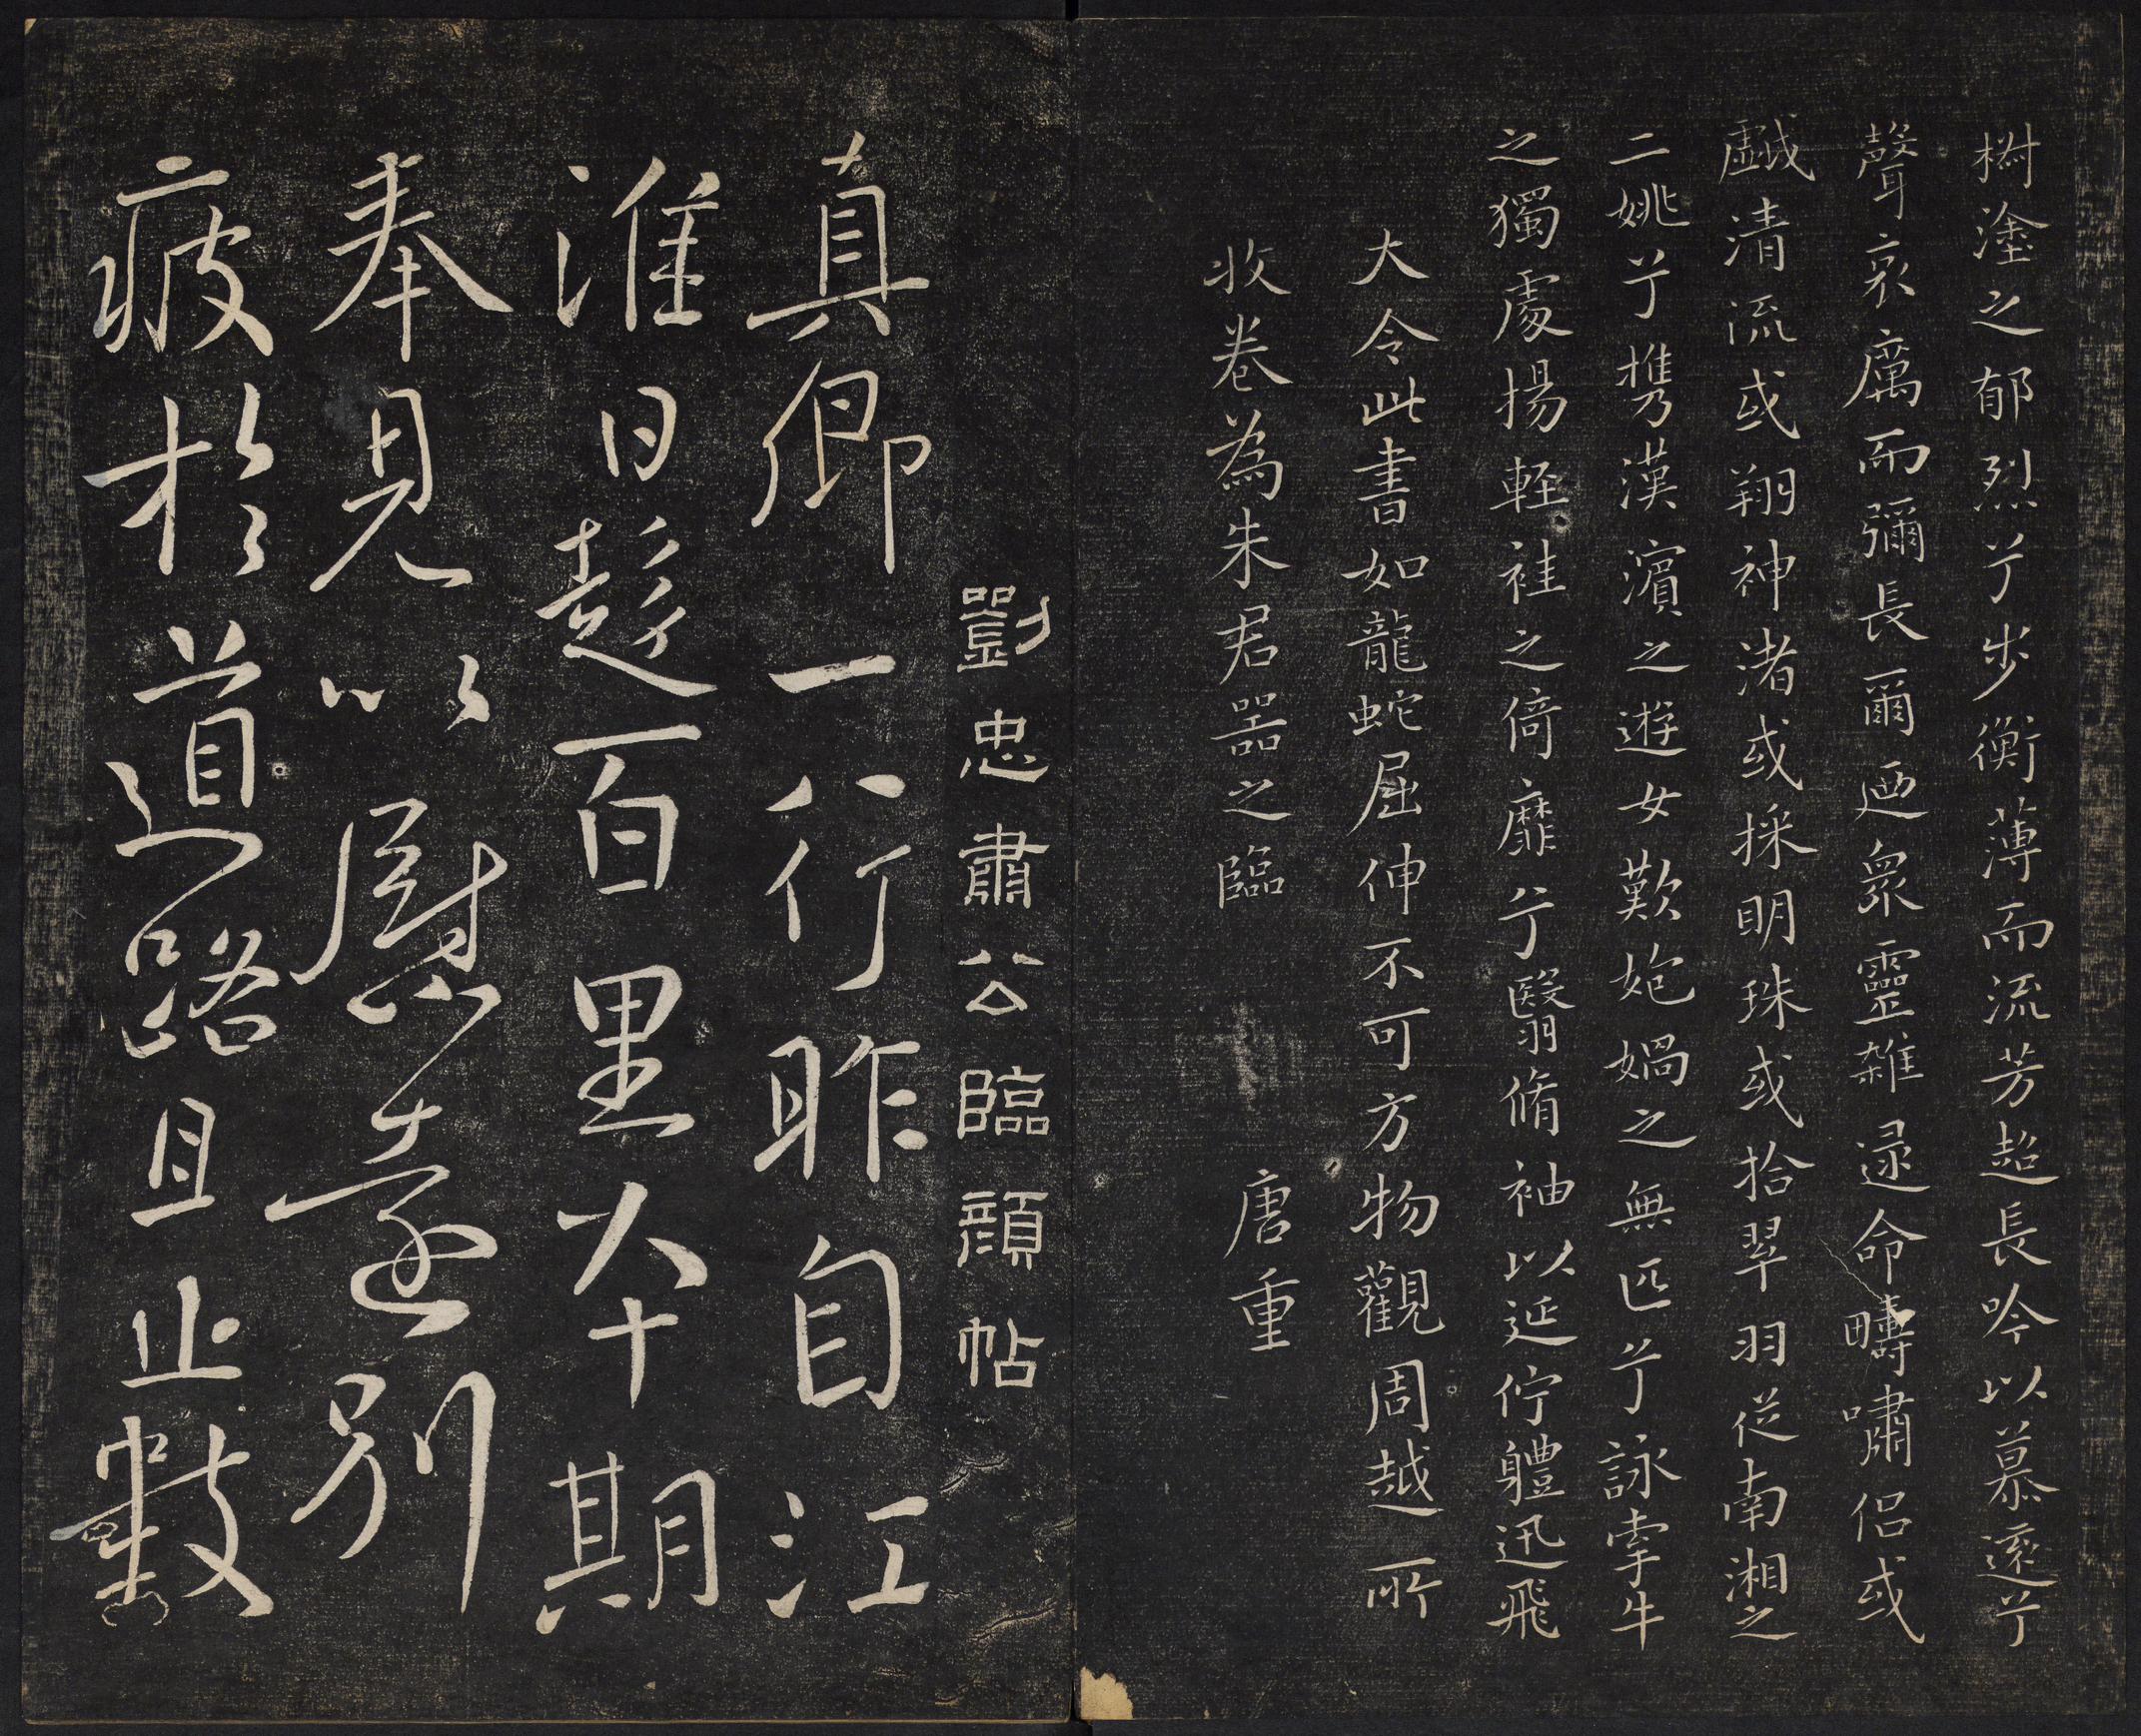 椒塗之郁烈兮步衡薄而流芳超長吟以慕遠兮
聲哀厲而彌長爾迺衆靈雜遝命疇嘯侣或
戯清流或翔神渚或採明珠或拾翠羽從南湘之
二姚兮攜漢濱之遊女歎媕媧之無匹兮詠牽牛
之獨處揚輕袿之倚靡兮翳脩袖以延佇軆迅飛
大令此書如龍蛇屈伸不可方物觀周越所
收卷為朱君器之臨
唐重
劉忠肅公臨顔帖
真卿一行昨自江
淮日趍百里本期
奉見以慰遠别
疲於道路且止數